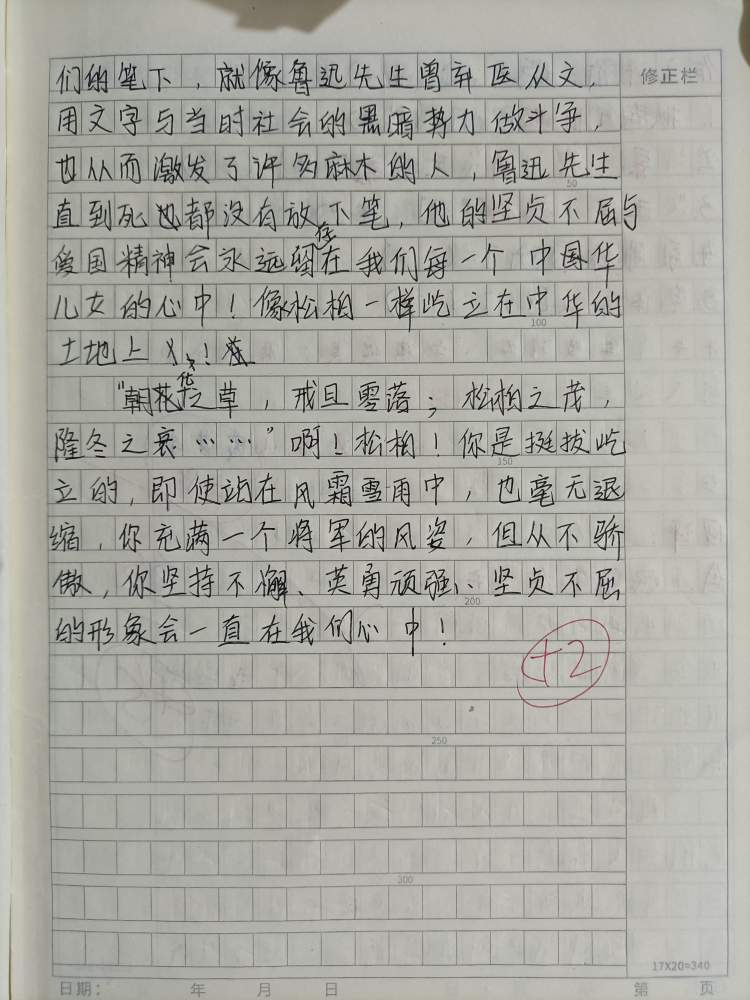 修正栏
们的笔下，就像鲁迅先生曾弃医从文，
用文字与当时社会的黑暗势力做斗争，
也从而激发了许多麻木的人，鲁迅先生
50
直到死也都没有放下笔，他的坚贞不屈与
爱国精神会永远留存在我们每一个中国华
儿女的心中！像松柏一样屹立在中华的
100
土地上！
"朝花华之草，戒旦零落；松柏之茂，
隆冬之衰……"啊！松柏！你是挺拔屹
150
立的，即使站在风霜雪雨中，也毫无退
缩，你充满一个将军的风姿，但从不骄
傲，你坚持不懈、英勇顽强、坚贞不屈
200
的形象会一直在我们心中！
+2
250
300
17X20=340
日期： 年 月 日 第 页